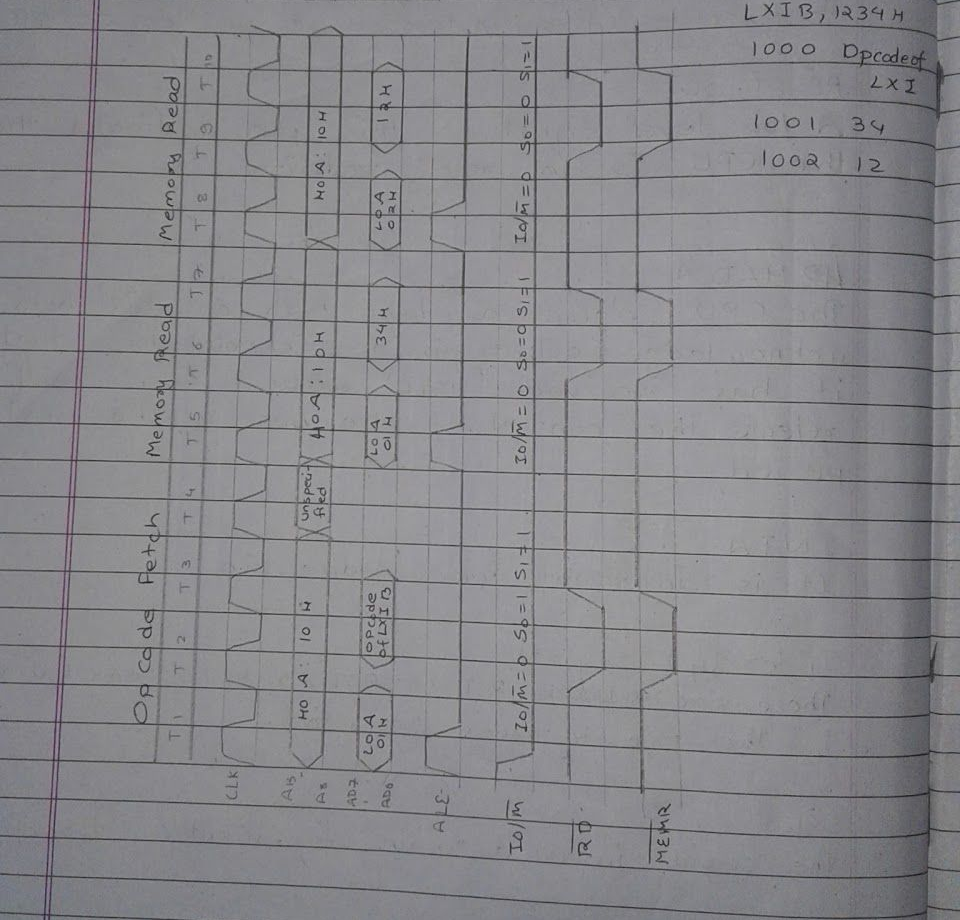 LXI B, 1234 H
1000 Opcode of
LXI
1001 34
1002 12
Opcode Fetch Memory Read Memory Read
T1 T2 T3 T4 T5 T6 T7 T8 T9 T10
CLK
A15- A8 HOA: 10H unspeci- fied HOA: 10H HOA: 10H
AD7 AD0 LOA 01H opcode of LXI B LOA 01H 34H LOA 02H 12H
ALE
IO/M̅ IO/M̅=0 S0=1 S1=1 IO/M̅=0 S0=0 S1=1 IO/M̅=0 S0=0 S1=1
R̅D̅
M̅E̅M̅R̅